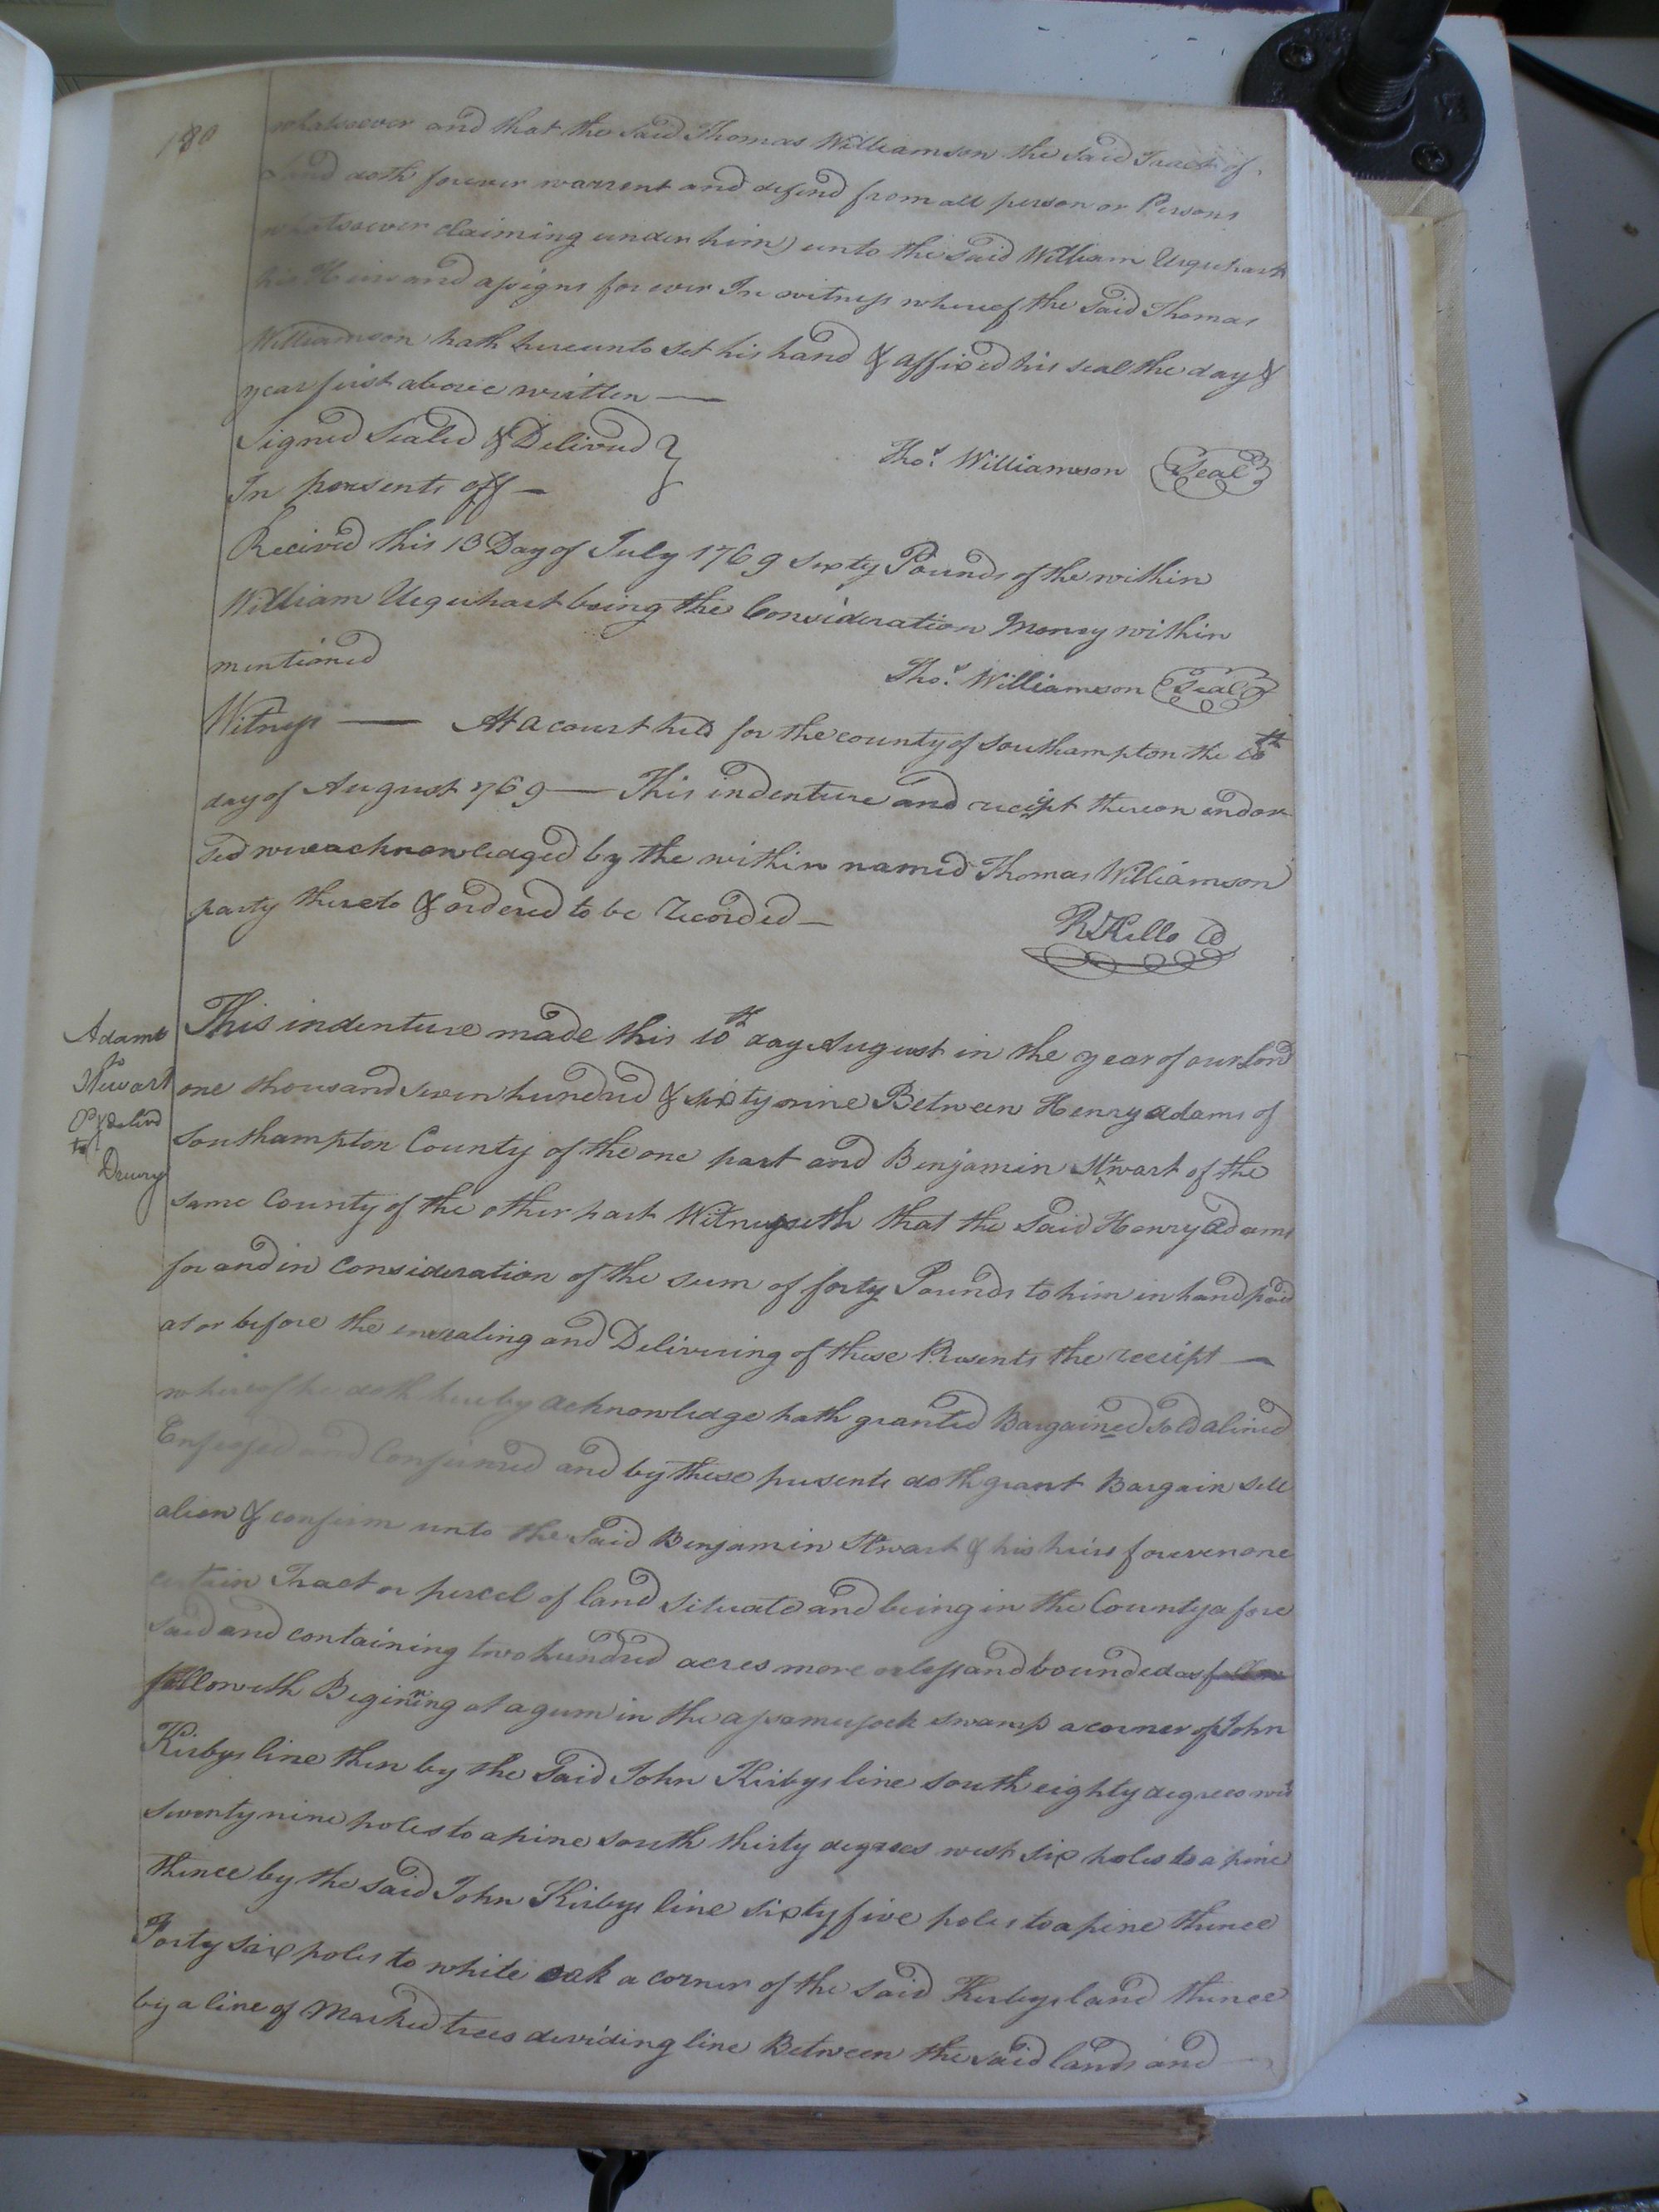 180
whatsoever and that the said Thomas Williamson the said Tract of
Land doth forever warrent and defend from all person or Persons
whatsoever claiming under him) unto the said William Urquhart
his Heirs and assigns for ever In witness whereof the said Thomas
Williamson hath hereunto set his hand & affixed his seal the day &
year first above written —
Signed Sealed & Delivred }
In presents off — Thos. Williamson Seal
Recived this 13 Day of July 1769 sixty Pounds of the within
William Urquhart being the Consideration Money within
mentioned Thos. Williamson Seal
Witness — At a court held for the county of Southampton the 10th
day of August 1769 — This indenture and reciept thereon endor
sed were acknowledged by the within named Thomas Williamson
party thereto & ordered to be Recorded — R Kello
Adams
to
Stewart
Drury
This indenture made this 10th day August in the year of our Lord
one thousand seven hundred & sixty nine Between Henry Adams of
Southampton County of the one part and Benjamin Stwart of the
same County of the other part Witnesseth that the said Henry Adams
for and in Consideration of the sum of forty Pounds to him in hand paid
at or before the ensealing and Delivering of these Presents the receipt —
whereof he doth hereby acknowledge hath granted Bargained Sold alined
Enfeofed and Confirmed and by these presents doth grant Bargain sell
alien & confirm unto the said Benjamin Stwart & his heirs forever one
certain Tract or percel of land situate and being in the County afore
said and containing two hundred acres more or less and bounded as
followeth Begining at a gum in the assamusock swamp a corner of John
Kirbys line then by the said John Kirbys line south eighty degrees west
seventy nine poles to a pine south thirty degrees west six poles to a pine
thence by the said John Kirbys line sixty five poles to a pine thence
Forty six poles to white oak a corner of the said Kirbys land thence
by a line of Marked trees deviding line Between the said lands and —